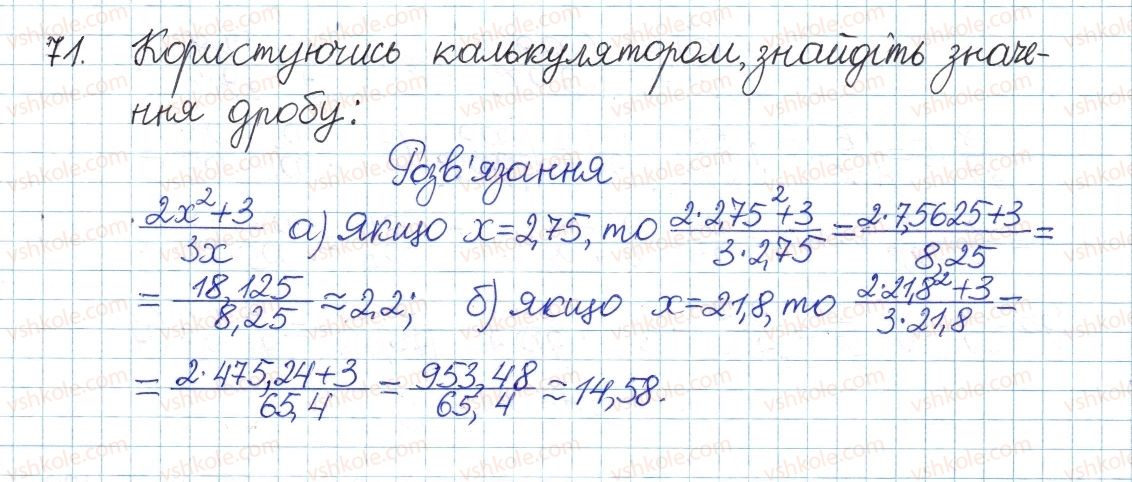 71. Користуючись калькулятором, знайдіть значе-
ння дробу:
Розв'язання
(2x²+3)/(3x) а) Якщо x=2,75, то (2·2,75²+3)/(3·2,75) = (2·7,5625+3)/(8,25) =
= (18,125)/(8,25) ≈ 2,2; б) якщо x=21,8, то (2·21,8²+3)/(3·21,8) =
= (2·475,24+3)/(65,4) = (953,48)/(65,4) ≈ 14,58.